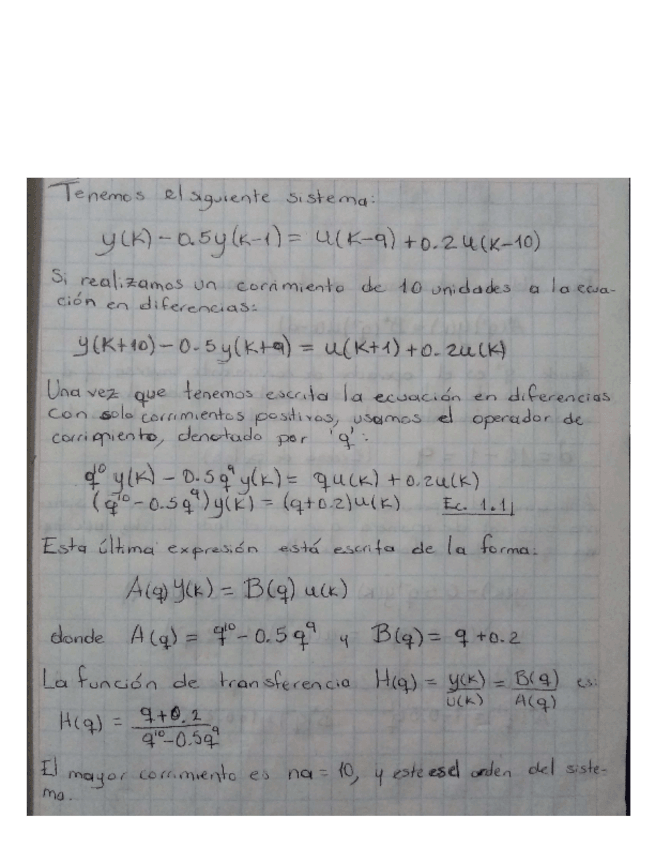 Tenemos el siguiente sistema:
y(k) - 0.5y(k-1) = u(k-9) + 0.2u(k-10)
Si realizamos un corrimiento de 10 unidades a la ecua-
ción en diferencias:
y(k+10) - 0.5y(k+9) = u(k+1) + 0.2u(k)
Una vez que tenemos escrita la ecuación en diferencias
con solo corrimientos positivos, usamos el operador de
corrimiento, denotado por 'q':
q¹⁰ y(k) - 0.5q⁹ y(k) = qu(k) + 0.2u(k)
(q¹⁰ - 0.5q⁹)y(k) = (q+0.2)u(k) Ec. 1.1
Esta última expresión está escrita de la forma:
A(q) y(k) = B(q) u(k)
donde A(q) = q¹⁰ - 0.5q⁹ y B(q) = q + 0.2
La función de transferencia H(q) = y(k)/u(k) = B(q)/A(q) es:
H(q) = q+0.2/q¹⁰-0.5q⁹
El mayor corrimiento es na = 10, y este es el orden del siste-
ma.